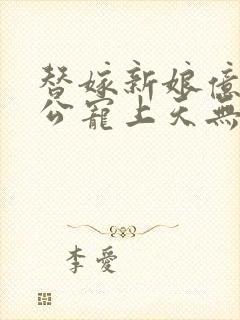 替嫁新娘億
公寵上天無
李愛